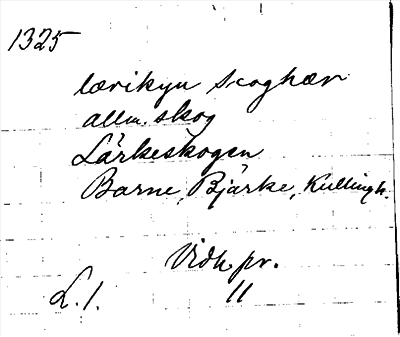 1325
lærikyu scoghær
allm. skog
Lärkeskogen
Barne, Bjärke, Kullingh.
Vidh. pr.
L. 1. 11